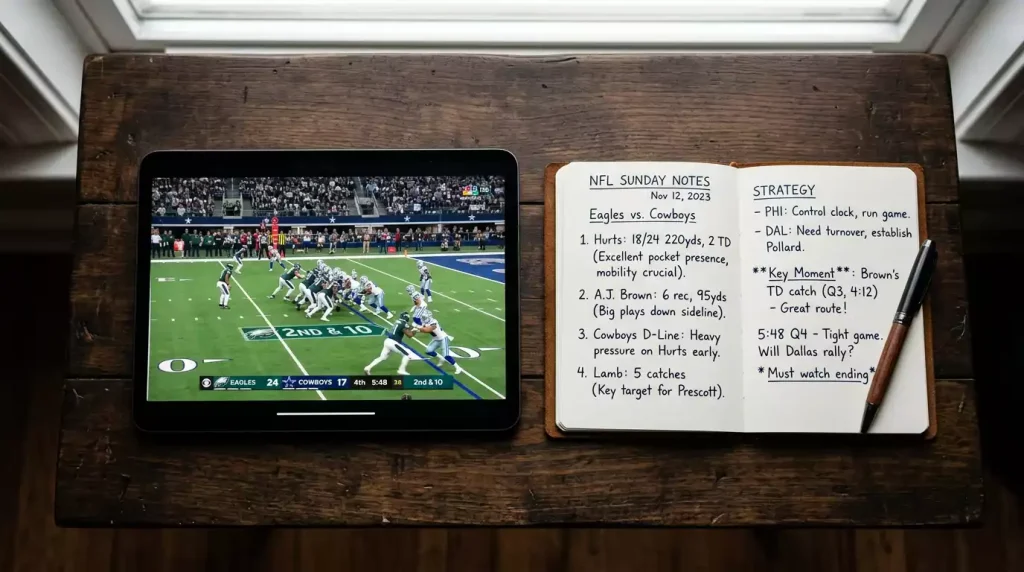 2ND & 10
EAGLES 24 COWBOYS 17 4th 5:48 38 2nd & 10
NFL SUNDAY NOTES
Nov 12, 2023
Eagles vs. Cowboys
1. Hurts: 18/24 220yds, 2 TD
(Excellent pocket presence,
mobility crucial).
2. A.J. Brown: 6 rec, 95yds
(Big plays down sideline).
3. Cowboys D-Line: Heavy
pressure on Hurts early.
4. Lamb: 5 catches
(Key target for Prescott).
STRATEGY
- PHI: Control clock, run game.
- DAL: Need turnover, establish
Pollard.
**Key Moment**: Brown's
TD catch (Q3, 4:12)
- Great route!
5:48 Q4 - Tight game.
Will Dallas rally?
*Must watch ending*